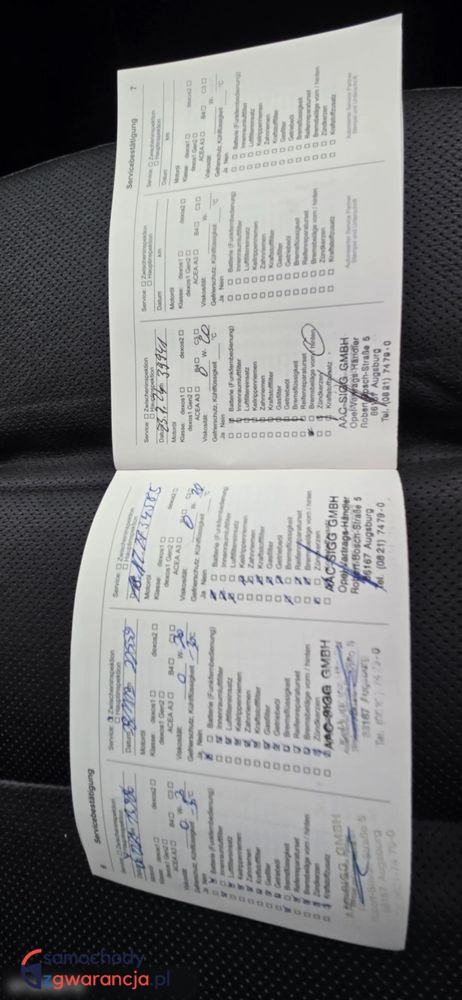 Servicebestätigung
Service: □ Zwischeninspektion
□ Hauptinspektion
Datum
Motoröl
Klasse: dexos1 □ dexos2 □
dexos1 Gen2 □
ACEA A3 □ B4 □ C3 □
Viskosität: 0 W-
Gefrierschutz, Kühlflüssigkeit
Ja Nein
Batterie (Funkfernbedienung)
Innenraumluftfilter
Luftfiltereinsatz
Keilrippenriemen
Zahnriemen
Kraftstofffilter
Gasfilter
Getriebeöl
Bremsflüssigkeit
Reifenreparaturset
Bremsbeläge vorn / hinten
Zündkerzen
Kraftstoffzusatz
Service: Zwischeninspektion
□ Hauptinspektion
Datum 22559
Motoröl
Klasse: dexos1 □ dexos2 □
dexos1 Gen2 □
ACEA A3 □ B4 □ C3 □
Viskosität: 0 W- 20
Gefrierschutz, Kühlflüssigkeit °C
Ja Nein
Batterie (Funkfernbedienung)
Innenraumluftfilter
Luftfiltereinsatz
Keilrippenriemen
Zahnriemen
Kraftstofffilter
Gasfilter
Getriebeöl
Bremsflüssigkeit
Reifenreparaturset
Bremsbeläge vorn / hinten
Zündkerzen
Kraftstoffzusatz
AAC-SIGG GMBH
86167 Augsburg
Service: □ Zwischeninspektion
□ Hauptinspektion
Motoröl
Klasse: dexos1 □ dexos2 □
dexos1 Gen2 □
ACEA A3 □ B4 □ C3 □
Viskosität: 0 W- 20
Gefrierschutz, Kühlflüssigkeit °C
Ja Nein
Batterie (Funkfernbedienung)
Innenraumluftfilter
Luftfiltereinsatz
Keilrippenriemen
Zahnriemen
Kraftstofffilter
Gasfilter
Getriebeöl
Bremsflüssigkeit
Reifenreparaturset
Bremsbeläge vorn / hinten
Zündkerzen
Kraftstoffzusatz
AAC-SIGG GMBH
Opel-Vertrags-Händler
Robert-Bosch-Straße 5
86167 Augsburg
Tel. (0821) 7479-0
Servicebestätigung 7
Service: □ Zwischeninspektion
□ Hauptinspektion
Datum 39941
Motoröl
Klasse: dexos1 □ dexos2 □
dexos1 Gen2 □
ACEA A3 □ B4 □ C3 □
Viskosität: 0 W- 20
Gefrierschutz, Kühlflüssigkeit °C
Ja Nein
Batterie (Funkfernbedienung)
Innenraumluftfilter
Luftfiltereinsatz
Keilrippenriemen
Zahnriemen
Kraftstofffilter
Gasfilter
Getriebeöl
Bremsflüssigkeit
Reifenreparaturset
Bremsbeläge vorn / hinten
Zündkerzen
Kraftstoffzusatz
AAC-SIGG GMBH
Opel-Vertrags-Händler
Robert-Bosch-Straße 5
86167 Augsburg
Tel. (0821) 7479-0
Service: □ Zwischeninspektion
□ Hauptinspektion
Datum km
Motoröl
Klasse: dexos1 □ dexos2 □
dexos1 Gen2 □
ACEA A3 □ B4 □ C3 □
Viskosität: W-
Gefrierschutz, Kühlflüssigkeit °C
Ja Nein
Batterie (Funkfernbedienung)
Innenraumluftfilter
Luftfiltereinsatz
Keilrippenriemen
Zahnriemen
Kraftstofffilter
Gasfilter
Getriebeöl
Bremsflüssigkeit
Reifenreparaturset
Bremsbeläge vorn / hinten
Zündkerzen
Kraftstoffzusatz
Autorisierter Service Partner
Stempel und Unterschrift
Service: □ Zwischeninspektion
□ Hauptinspektion
Datum km
Motoröl
Klasse: dexos1 □ dexos2 □
dexos1 Gen2 □
ACEA A3 □ B4 □ C3 □
Viskosität: W-
Gefrierschutz, Kühlflüssigkeit °C
Ja Nein
Batterie (Funkfernbedienung)
Innenraumluftfilter
Luftfiltereinsatz
Keilrippenriemen
Zahnriemen
Kraftstofffilter
Gasfilter
Getriebeöl
Bremsflüssigkeit
Reifenreparaturset
Bremsbeläge vorn / hinten
Zündkerzen
Kraftstoffzusatz
Autorisierter Service Partner
Stempel und Unterschrift
samochody
zgwarancja.pl